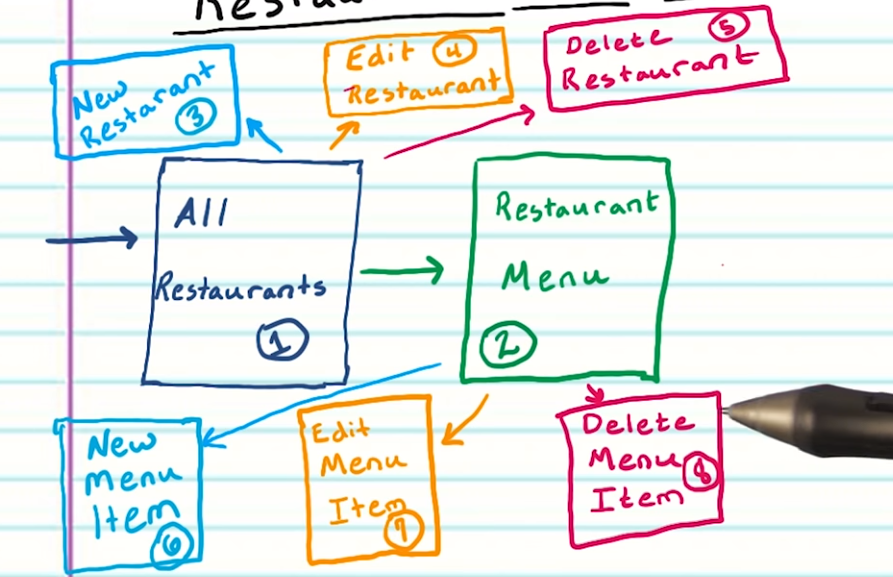 New
Restarant
3
Edit 4
Restaurant
Delete 5
Restaurant
All
Restaurants
1
Restaurant
Menu
2
New
Menu
Item
6
Edit
Menu
Item
7
Delete
Menu 8
Item